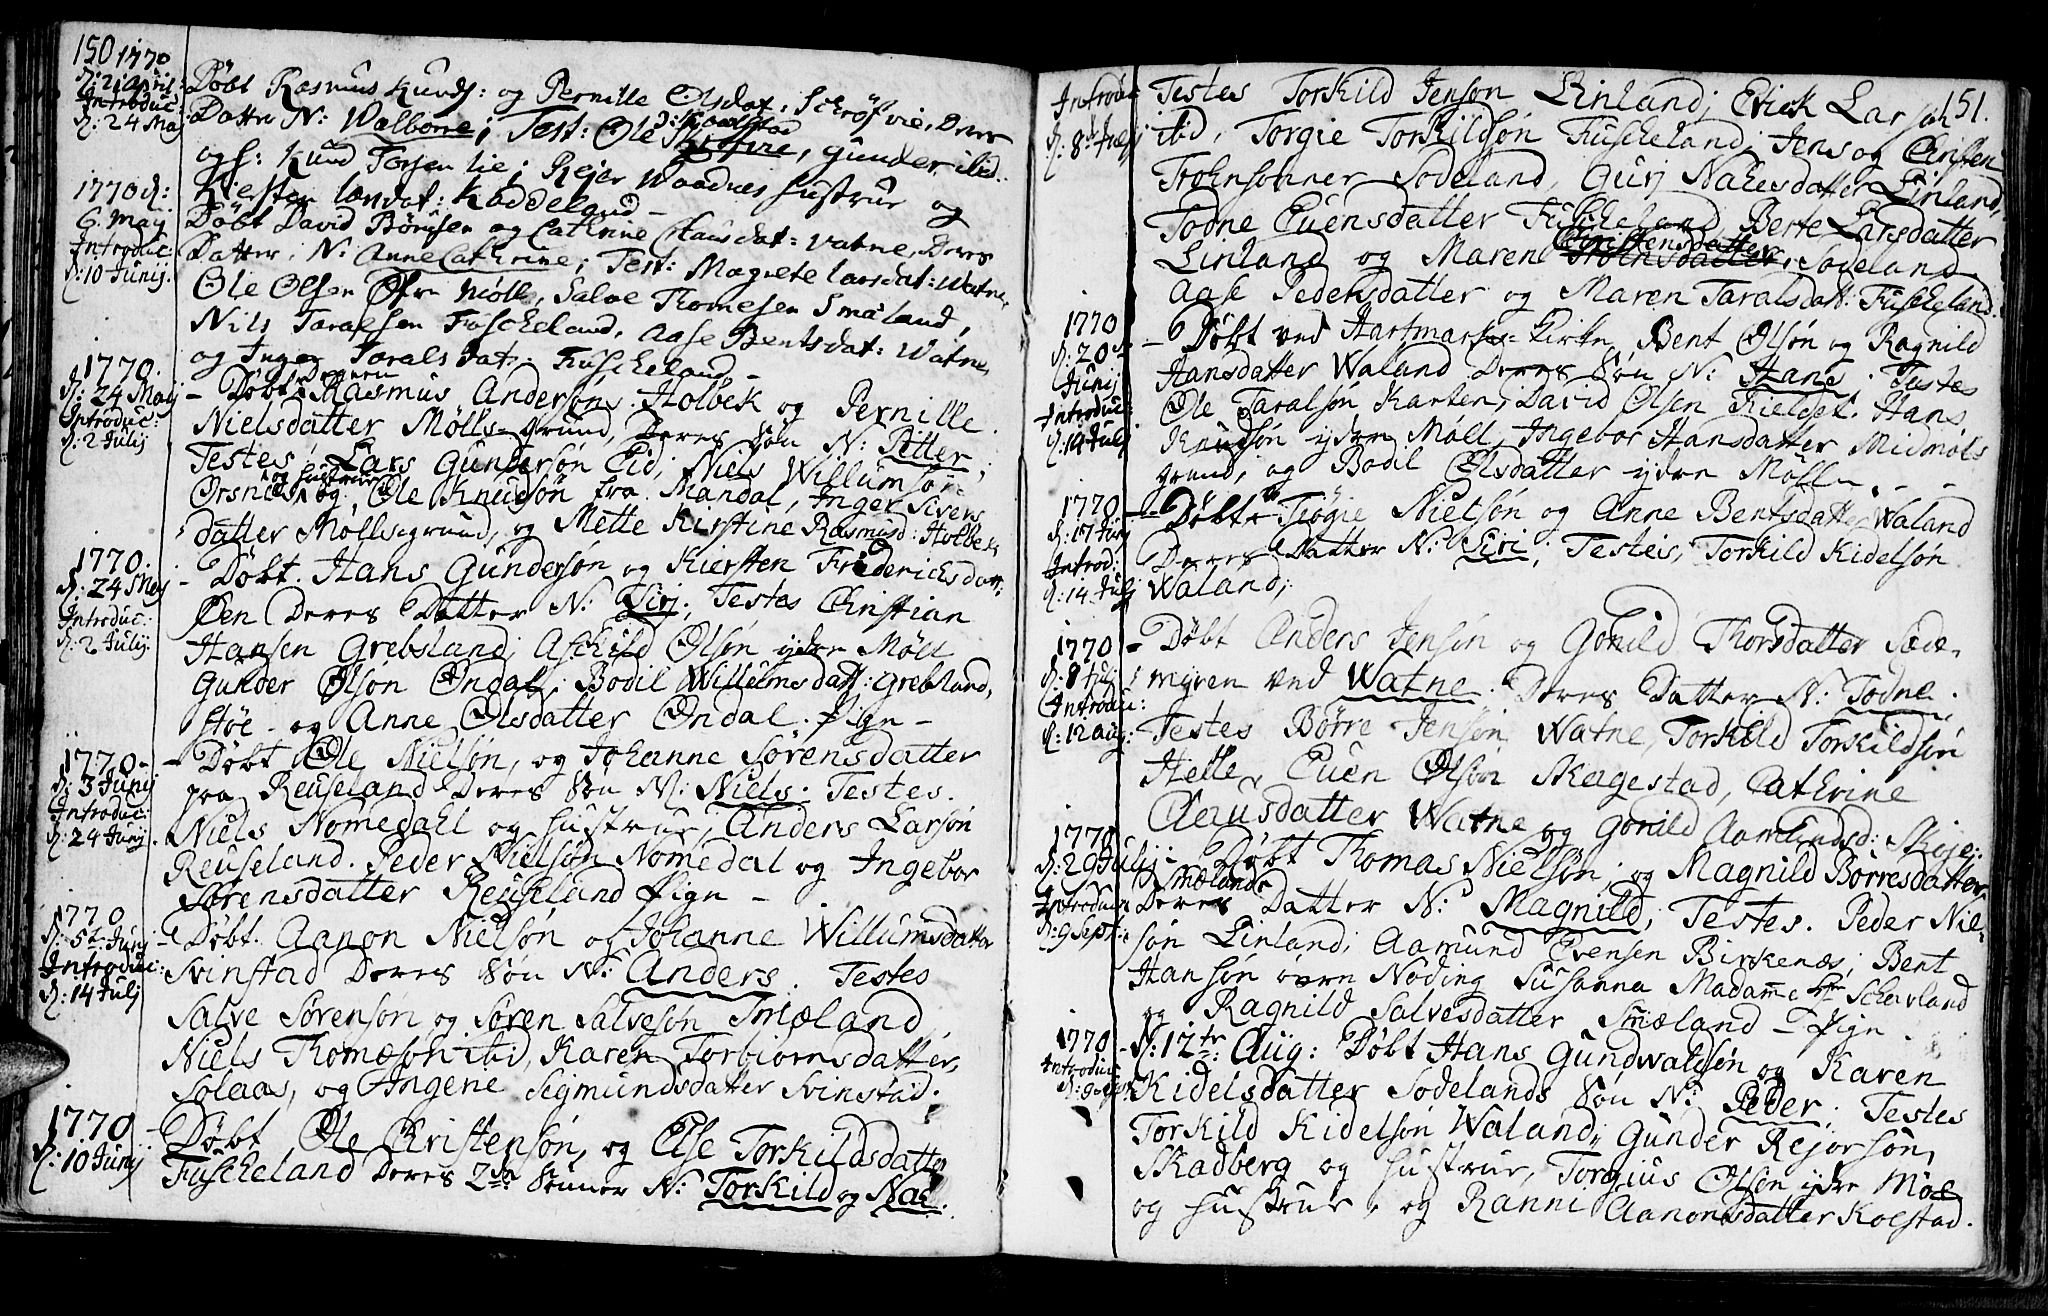 150 1770
d: 21 April:
Introduc:
d: 24 Maj
Døbt Rasmus Knuds: og Pernille Olsdat. Schrøfvie, Deres
Datter N: Walborre; Test: Ole Kaalstad, Gunder ibid.
og h: Knud Torsen lie; Rejer Waadnes hustrue og
Kiersten dat: Kaddeland –
1770 d:
6. May
Introduc:
d: 10 Junij.
Døbt David Børresen og Cathrine Clausdat: Vatne, Deres
Datter. N: Anne Cathrine; Test: Magrete larsdat: Watne,
Ole Olsen Øfre Mølle, Salve Thomesen Småland,
Nils Taralsen Fuscheland, Aase Bentsdat: Watne,
og Inger Taralsdat: Fuscheland –
1770.
d: 24 Maij
Introduc:
d: 2 Julij
– Døbt Degnen Rasmus Andersøns Holbek og Pernille
Nielsdatter Mølls-grund, Deres Søn N: Petter;
Testes, Lars Gundersøn Eid; Niels Willumsøn
Ørsnes og hustrue og Ole Knudsøn fra Mandal, Inger Sivers
datter Møllsgrund, og Mette Kirstine Rasmusd: Holbek
1770.
d: 24 Maj
Introduc:
d: 2 Julij.
– Døbt. Hans Gundersøn og Kiersten Fredericksdatt:
Øen Deres Datter N: Sirj; Testes Christian
Hansen Grebsland; Aschild Olsøn ydre Møll
Gunder Olsøn Øndal; Bodil Willumsdatt: Grebsland,
støe – og Anne Olsdatter Øndal. Pige –
1770 –
d: 3 Junij
Introduc:
d: 24 Junij.
– Døbt Ole Nielsøn, og Johanne Sørensdatter
paa Reuseland Deres Søn N: Niels: Testes.
Niels Nomedahl og hustrue; Anders Larsøn
Reuseland. Peder Nielsøn Nomedal og Ingebor
Sørensdatter Reuseland Pige –
1770
d: 5t Junij
Introduc:
d: 14 Julj
– Døbt. Aanon Nielsøn og Johanne Willumsdatter
Svinstad Deres Søn N: Anders. Testes
Salve Sørensøn og Søren Salvesøn Smæland
Niels Thomæsøn ibid, Karen Torbiornsdatter,
Solaas, og Angene Segmundsdatter Svinstad.
1770
d: 10 Junij
– Døbt Ole Christensøn, og Else Torkildsdatter
Fuscheland Deres 2de Sønner N: Torkild og
Introduc
d: 8 Julj
Testes Torkild Jensøn Linland; Erick Larsøn 151.
ibid, Torgie Torkildsøn Fuscheland; Jens og Christen
Trohnsønner Sodeland, Gurj Nahesdatter Linland,
Todne Euensdatter Fuscheland Berte Larsdatter
Linland og Maren Christensdatter Sodeland
Aase Pedersdatter og Maren Taralsdatt: Fuscheland.
1770
d: 20
Junij
Introduc:
d: 14 Julj
– Døbt ved Hartmarks-Kirke Bent Olsøn og Ragnild
Hansdatter Waland Deres Søn N: Hans. Testes
Ole Taralsøn Karten; David Olsen Hans
Knudsøn ydre Møll Ingebor Hansdatter Midmøls
grund, og Bodil Olsdatter ydre Mølle –
1770 –
d: 17 Junj
Introd:
d: 14 Julj
– Døbt Tiøgie Nielsøn og Anne Bentsdatter Waland
Deres Datter N: Siri; Testeis, Torkild Kidelsøn
Waland;
1770 –
d: 8 Julj
Introdu:
d: 12 Aug:
– Døbt Anders Jensøn og Gonild Thorsdatter Sæde-
myren ved Watne. Deres Datter N: Todne.
Testes Børre Jensøn Watne, Torkild Torkildsøn
Helle, Euen Olsøn Skagestad, Cathrine
Clausdatter Watne og Gonild Aamundsd: Skeje:
1770
d: 29 Julij
Introduc
d: 9 Sept:
– Døbt Thomas Nielsøn og Magnild Børresdatter
Smælands
Deres Datter N: Magnild; Testes. Peder Niel-
søn Linland; Aamund Evensen Birkenæs; Bent
Hansøn øvre Nøding Susanna Madamme Schavland
og Ragnild Salvesdatter Smæland – Pige
1770 –
Introduc
d: 9 Sept
d: 12te Aug: Døbt Hans Gundwaldsøn og Karen
Kidelsdatter Sodelands Søn N: Peder; Testes
Torkild Kidelsøn Waland; Gunder Rejorsøn,
Skadberg og hustrue, Torgius Olsen ydre Møll
og hustrue, og Ranni Aanonsdatter Kolstad.